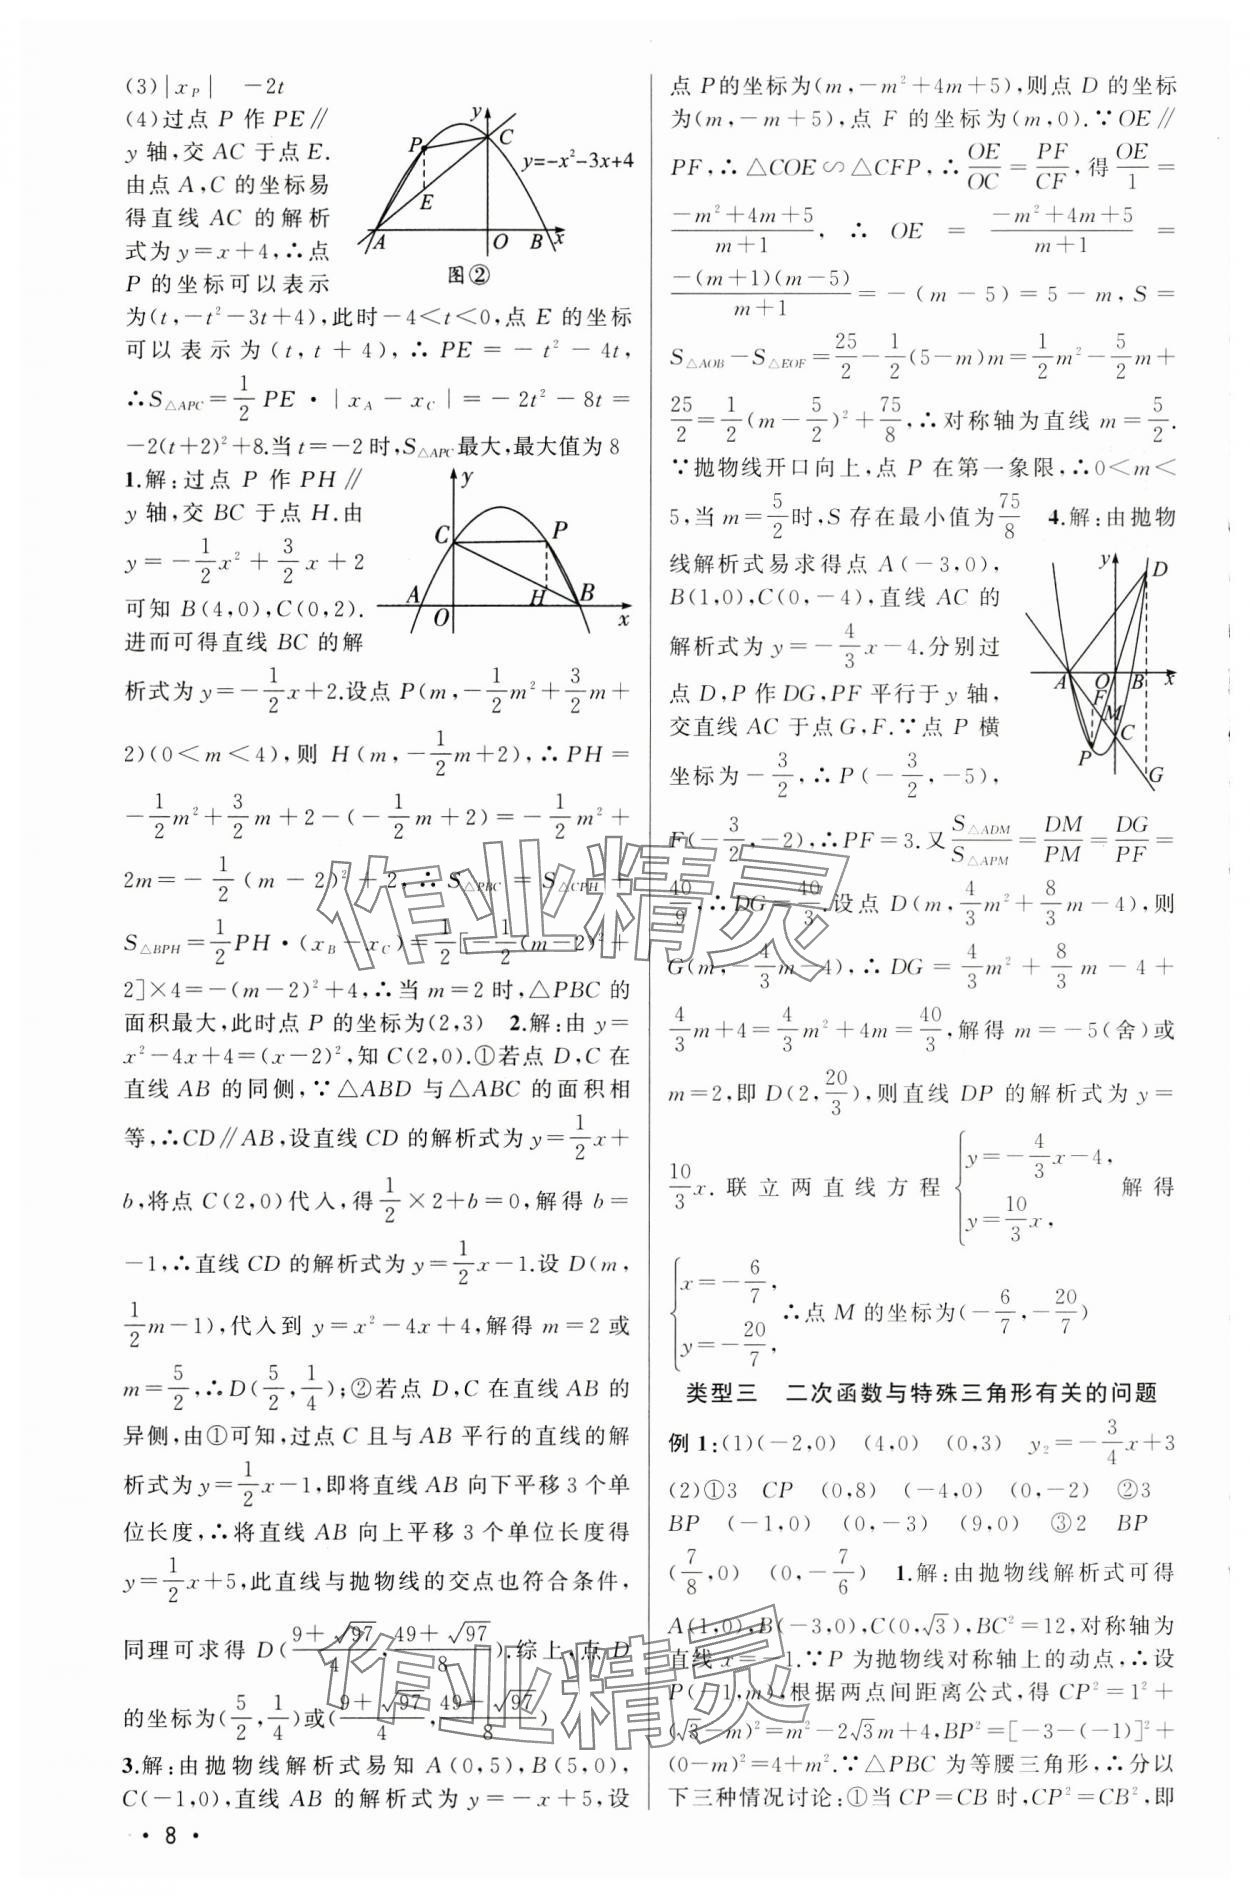 (3)|x_P|　-2t
(4)过点 P 作 PE∥
y 轴,交 AC 于点 E.
由点 A,C 的坐标易
得直线 AC 的解析
式为 y=x+4,∴点
P 的坐标可以表示
y C P y=-x²-3x+4 E A O B x
图②
为(t,-t²-3t+4),此时-4<t<0,点 E 的坐标
可以表示为(t,t+4),∴PE=-t²-4t,
∴S△APC=1/2 PE·|x_A-x_C|=-2t²-8t=
-2(t+2)²+8.当 t=-2 时,S△APC最大,最大值为 8
1.解:过点 P 作 PH∥
y 轴,交 BC 于点 H.由
y=-1/2x²+3/2x+2
可知 B(4,0),C(0,2).
进而可得直线 BC 的解
y C P A H B O x
析式为 y=-1/2x+2.设点 P(m,-1/2m²+3/2m+
2)(0<m<4),则 H(m,-1/2m+2),∴PH=
-1/2m²+3/2m+2-(-1/2m+2)=-1/2m²+
2m=-1/2(m-2)²+2,∴S△PBC=S△CPH+
S△BPH=1/2PH·(x_B-x_C)=1/2[-1/2(m-2)²+
2]×4=-(m-2)²+4,∴当 m=2 时,△PBC 的
面积最大,此时点 P 的坐标为(2,3)　2.解:由 y=
x²-4x+4=(x-2)²,知 C(2,0).①若点 D,C 在
直线 AB 的同侧,∵△ABD 与△ABC 的面积相
等,∴CD∥AB,设直线 CD 的解析式为 y=1/2x+
b,将点 C(2,0)代入,得1/2×2+b=0,解得 b=
-1,∴直线 CD 的解析式为 y=1/2x-1.设 D(m,
1/2m-1),代入到 y=x²-4x+4,解得 m=2 或
m=5/2,∴D(5/2,1/4);②若点 D,C 在直线 AB 的
异侧,由①可知,过点 C 且与 AB 平行的直线的解
析式为 y=1/2x-1,即将直线 AB 向下平移 3 个单
位长度,∴将直线 AB 向上平移 3 个单位长度得
y=1/2x+5,此直线与抛物线的交点也符合条件,
同理可求得 D((9+√97)/4,(49+√97)/8).综上,点 D
的坐标为(5/2,1/4)或((9+√97)/4,(49+√97)/8)
3.解:由抛物线解析式易知 A(0,5),B(5,0),
C(-1,0),直线 AB 的解析式为 y=-x+5,设
·8·
点 P的坐标为(m,-m²+4m+5),则点 D 的坐标
为(m,-m+5),点 F 的坐标为(m,0).∵OE∥
PF,∴△COE∽△CFP,∴OE/OC=PF/CF,得OE/1=
(-m²+4m+5)/(m+1),∴OE=(-m²+4m+5)/(m+1)=
-(m+1)(m-5)/(m+1)=-(m-5)=5-m,S=
S△AOB-S△EOF=25/2-1/2(5-m)m=1/2m²-5/2m+
25/2=1/2(m-5/2)²+75/8,∴对称轴为直线 m=5/2.
∵抛物线开口向上,点 P 在第一象限,∴0<m<
5,当 m=5/2时,S 存在最小值为75/8　4.解:由抛物
线解析式易求得点 A(-3,0),
B(1,0),C(0,-4),直线 AC 的
解析式为 y=-4/3x-4.分别过
点 D,P 作 DG,PF 平行于 y 轴,
交直线 AC 于点 G,F.∵点 P 横
坐标为-3/2,∴P(-3/2,-5),
y D A O B x F M C P G
F(-3/2,-2),∴PF=3.又S△ADM/S△APM=DM/PM=DG/PF=
40/9,∴DG=40/3.设点 D(m,4/3m²+8/3m-4),则
G(m,-4/3m-4),∴DG=4/3m²+8/3m-4+
4/3m+4=4/3m²+4m=40/3,解得 m=-5(舍)或
m=2,即 D(2,20/3),则直线 DP 的解析式为 y=
10/3x.联立两直线方程{y=-4/3x-4, y=10/3x,解得
{x=-6/7, y=-20/7,∴点 M 的坐标为(-6/7,-20/7)
类型三　二次函数与特殊三角形有关的问题
例 1:(1)(-2,0)　(4,0)　(0,3)　y₂=-3/4x+3
(2)①3　CP　(0,8)　(-4,0)　(0,-2)　②3
BP　(-1,0)　(0,-3)　(9,0)　③2　BP
(7/8,0)　(0,-7/6)　1.解:由抛物线解析式可得
A(1,0),B(-3,0),C(0,√3),BC²=12,对称轴为
直线 x=-1.∵P 为抛物线对称轴上的动点,∴设
P(-1,m),根据两点间距离公式,得 CP²=1²+
(√3-m)²=m²-2√3m+4,BP²=[-3-(-1)]²+
(0-m)²=4+m².∵△PBC 为等腰三角形,∴分以
下三种情况讨论:①当 CP=CB 时,CP²=CB²,即
作业精灵
作业精灵